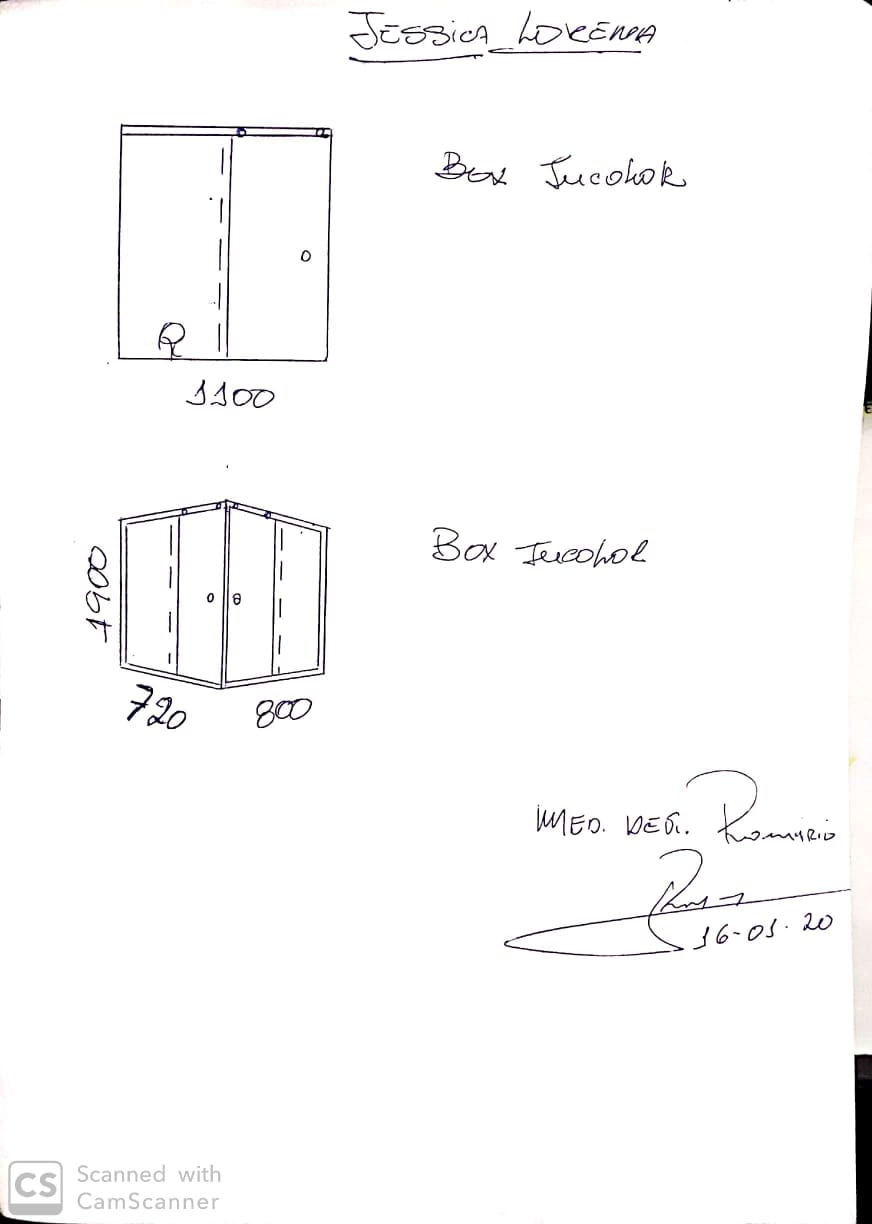 JESSICA LORENA
Box Incolor
R
1100
Box Incolor
1900
720
800
MED. DEF. Romário
16-01-20
CS Scanned with
CamScanner